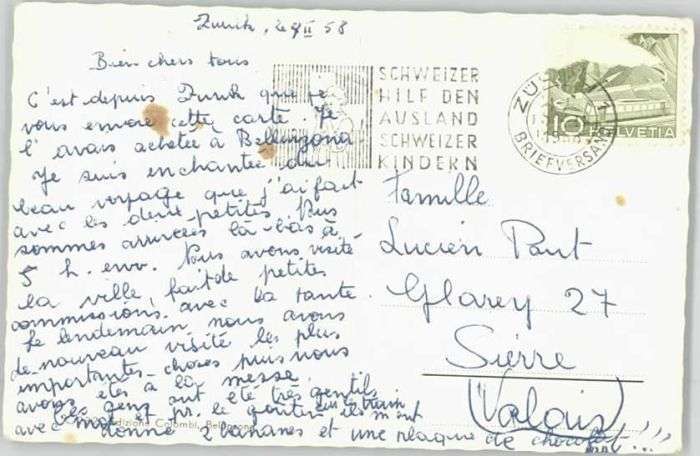 Zurich, le II 58
Bien chers tous
C'est depuis Zurich que je
vous envoie cette carte. Je
l'avais achetée à Bellinzona
Je suis enchantée du
beau voyage que j'ai fait
avec les deux petites. Nous
sommes arrivées là-bas à
5 h. env. Nous avons visité
la ville, fait de petites
commissions, avec la tante.
Le lendemain, nous avons
de nouveau visité les plus
importantes choses puis nous
avons étés à la messe.
Les gens ont été très gentils
avec moi et pr. le goûter ils m'ont
sur le train
donné 2 bananes et une plaque de chocolat!!!
Edizione Colombi, Bellinzona
SCHWEIZER
HILF DEN
AUSLAND
SCHWEIZER
KINDERN
BRIEFVERSAND
10 HELVETIA
Famille
Lucien Pont
Glarey 27
Sierre
(Valais)